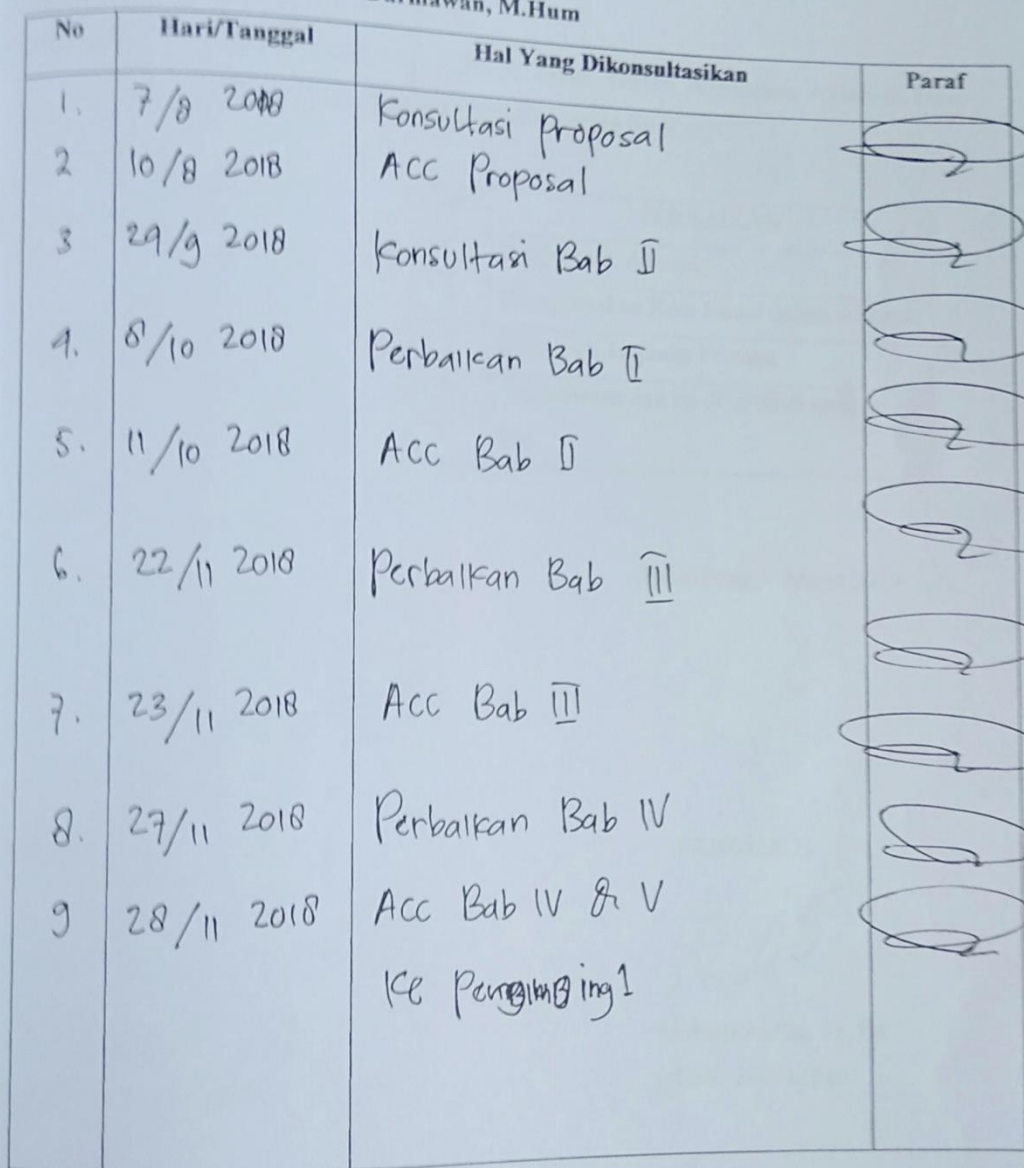 M.Hum
No Hari/Tanggal Hal Yang Dikonsultasikan Paraf
1. 7/8 2018 Konsultasi Proposal
2 10/8 2018 ACC Proposal
3 29/9 2018 Konsultasi Bab II
4. 8/10 2018 Perbaikan Bab II
5. 11/10 2018 ACC Bab II
6. 22/11 2018 Perbaikan Bab III
7. 23/11 2018 ACC Bab III
8. 27/11 2018 Perbaikan Bab IV
9 28/11 2018 Acc Bab IV & V
Ke